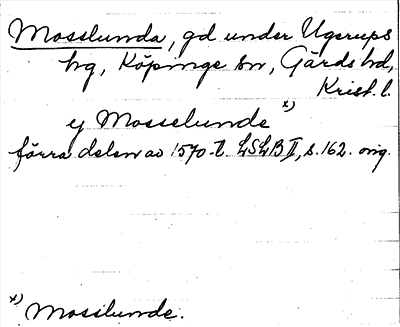 Mosslunda, gd under Ugerups
hg, Köpinge sn, Gärds hd,
Krist. l.
x)
ej Mosselunde
förra delen av 1570-t. LSLB II, s. 162. orig.
x) Mosslunde.